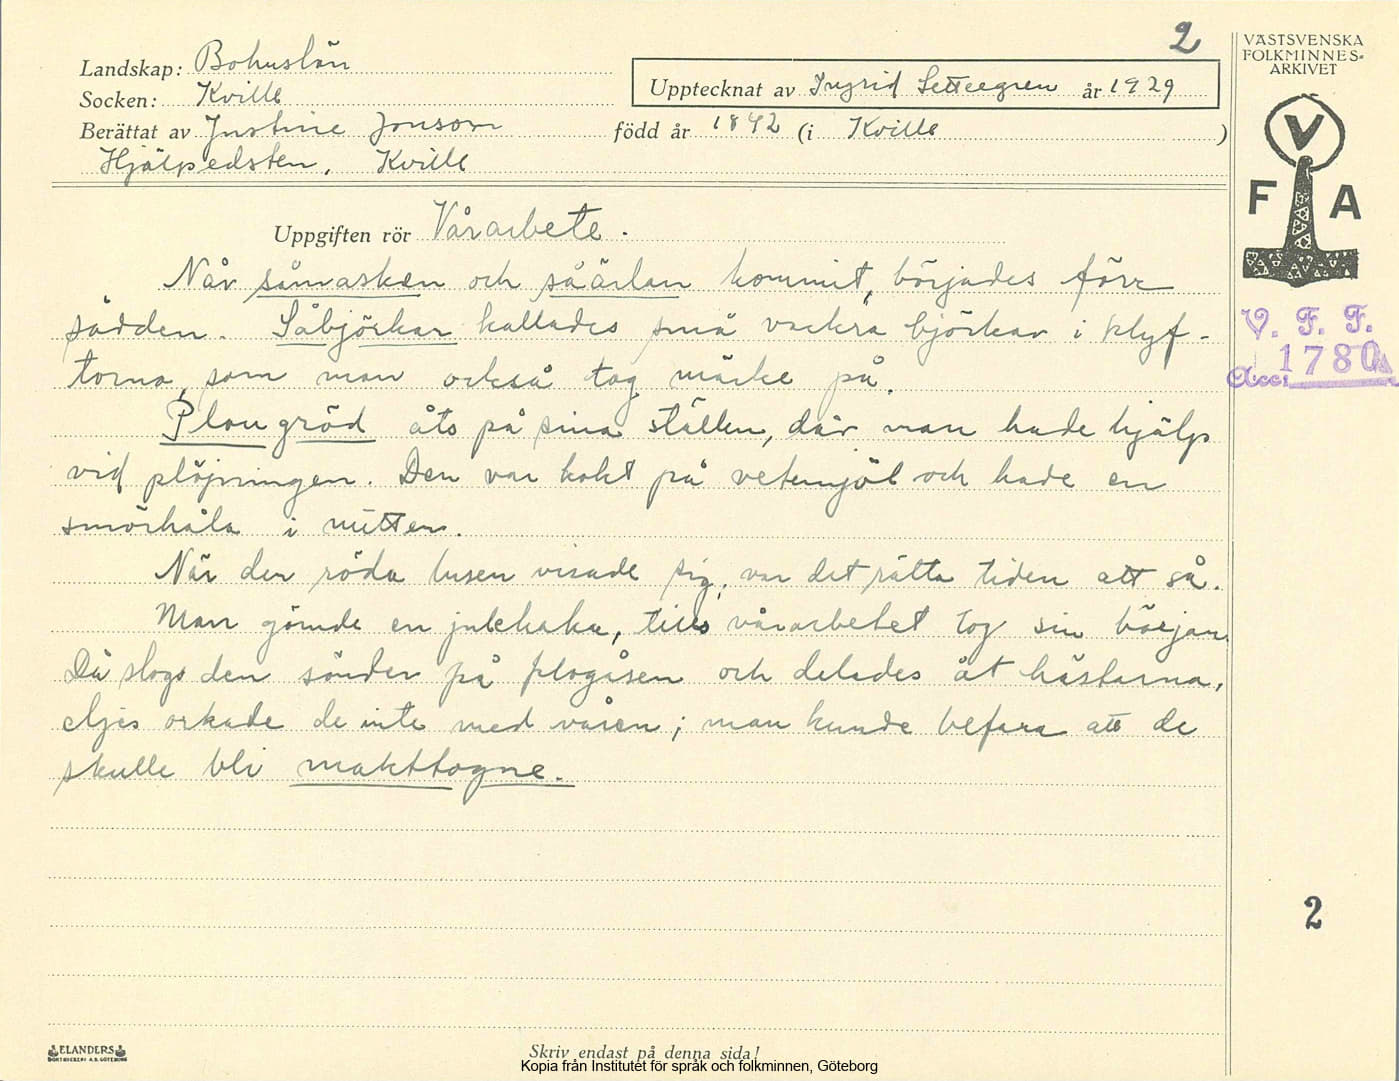 2
VÄSTSVENSKA
FOLKMINNES-
ARKIVET
Landskap: Bohuslän
Upptecknat av Ingrid Settergren år 1929
Socken: Kville
Berättat av Justine Jonson född år 1842 (i Kville )
Hjälpedsten, Kville
V
F A
Uppgiften rör Vårarbete.
När såmasken och såärlan kommit, börjades före
sådden. Såbjörkar kallades små vackra björkar i klyf-
torna, som man också tog märke på.
Plougröd åts på sina ställen, där man hade hjälp
vid plöjningen. Den var kokt på vetemjöl och hade en
smörhåla i mitten.
När den röda lusen visade sig, var det rätta tiden att så.
Man gömde en julekaka, tills vårarbetet tog sin början.
Då slogs den sönder på plogåsen och delades åt hästarna,
eljes orkade de inte med våren; man kunde befara att de
skulle bli makttogne.
V. F. F.
Acc. 1780
2
ELANDERS
BOKTRYCKERI A.B. GÖTEBORG
Skriv endast på denna sida!
Kopia från Institutet för språk och folkminnen, Göteborg